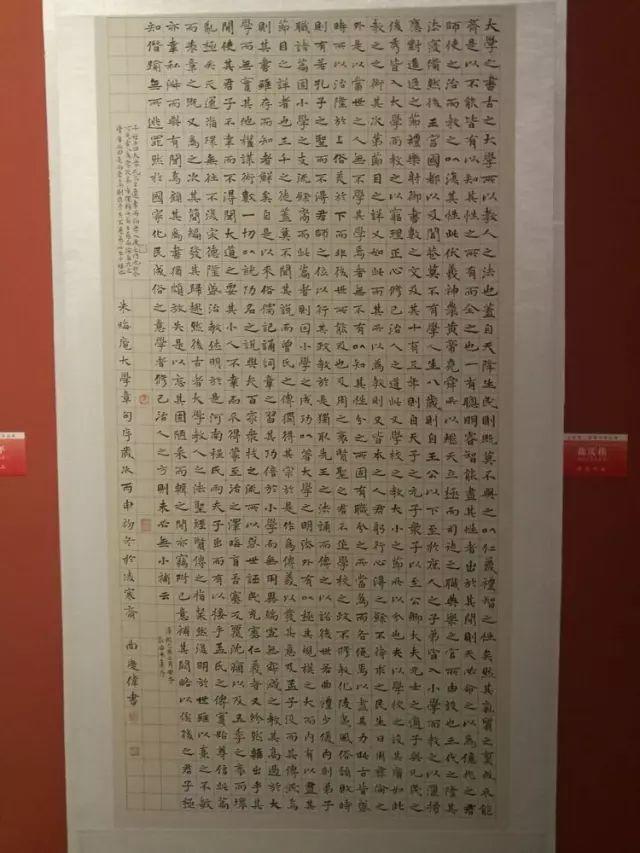 大學之書古之大學所以教人之法也蓋自天降生民則既莫不與之以仁義禮智之性矣然其氣質之稟或不能
齊是以不能皆有以知其性之所有而全之也一有聰明睿智能盡其性者出於其間則天必命之以為億兆之君
師使之治而教之以復其性此伏羲神農黃帝堯舜所以繼天立極而司徒之職典樂之官所由設也三代之隆其
法寖備然後王宮國都以及閭巷莫不有學人生八歲則自王公以下至於庶人之子弟皆入小學而教之以灑掃
應對進退之節禮樂射御書數之文及其十有五年則自天子之元子眾子以至公卿大夫元士之適子與凡民之
俊秀皆入大學而教之以窮理正心修己治人之道此又學校之教大小之節所以分也夫以學校之設其廣如此
教之之術其次第節目之詳又如此而其所以為教則又皆本之人君躬行心得之餘不待求之民生日用彝倫之
外是以當世之人無不學其學焉者無不有以知其性分之所固有職分之所當為而各俛焉以盡其力此古昔盛
時所以治隆於上俗美於下而非後世所能及也及周之衰賢聖之君不作學校之政不修教化陵夷風俗頹敗時
則有若孔子之聖而不得君師之位以行其政教於是獨取先王之法誦而傳之以詔後世若曲禮少儀內則弟子
職諸篇固小學之支流餘裔而此篇者則因小學之成功以著大學之明法外有以極其規模之大而內有以盡其
節目之詳者也三千之徒蓋莫不聞其說而曾氏之傳獨得其宗於是作為傳義以發其意及孟子沒而其傳泯焉
則其書雖存而知者鮮矣自是以來俗儒記誦詞章之習其功倍於小學而無用異端虛無寂滅之教其高過於大
學而無實其他權謀術數一切以就功名之說與夫百家眾技之流所以惑世誣民充塞仁義者又紛然雜出乎其
間使其君子不幸而不得聞大道之要其小人不幸而不得蒙至治之澤晦盲否塞反覆沈痼以及五季之衰而壞
亂極矣天運循環無往不復宋德隆盛治教休明於是河南程氏兩夫子出而有以接乎孟氏之傳實始尊信此篇
而表章之既又為之次其簡編發其歸趣然後古者大學教人之法聖經賢傳之指粲然復明於世雖以熹之不敏
亦幸私淑而與有聞焉顧其為書猶頗放失是以忘其固陋采而輯之間亦竊附己意補其闕略以俟後之君子極
知僭踰無所逃罪然於國家化民成俗之意學者修己治人之方則未必無小補云
朱晦庵大學章句序歲次丙申初冬於凌寒齋 尚慶偉書